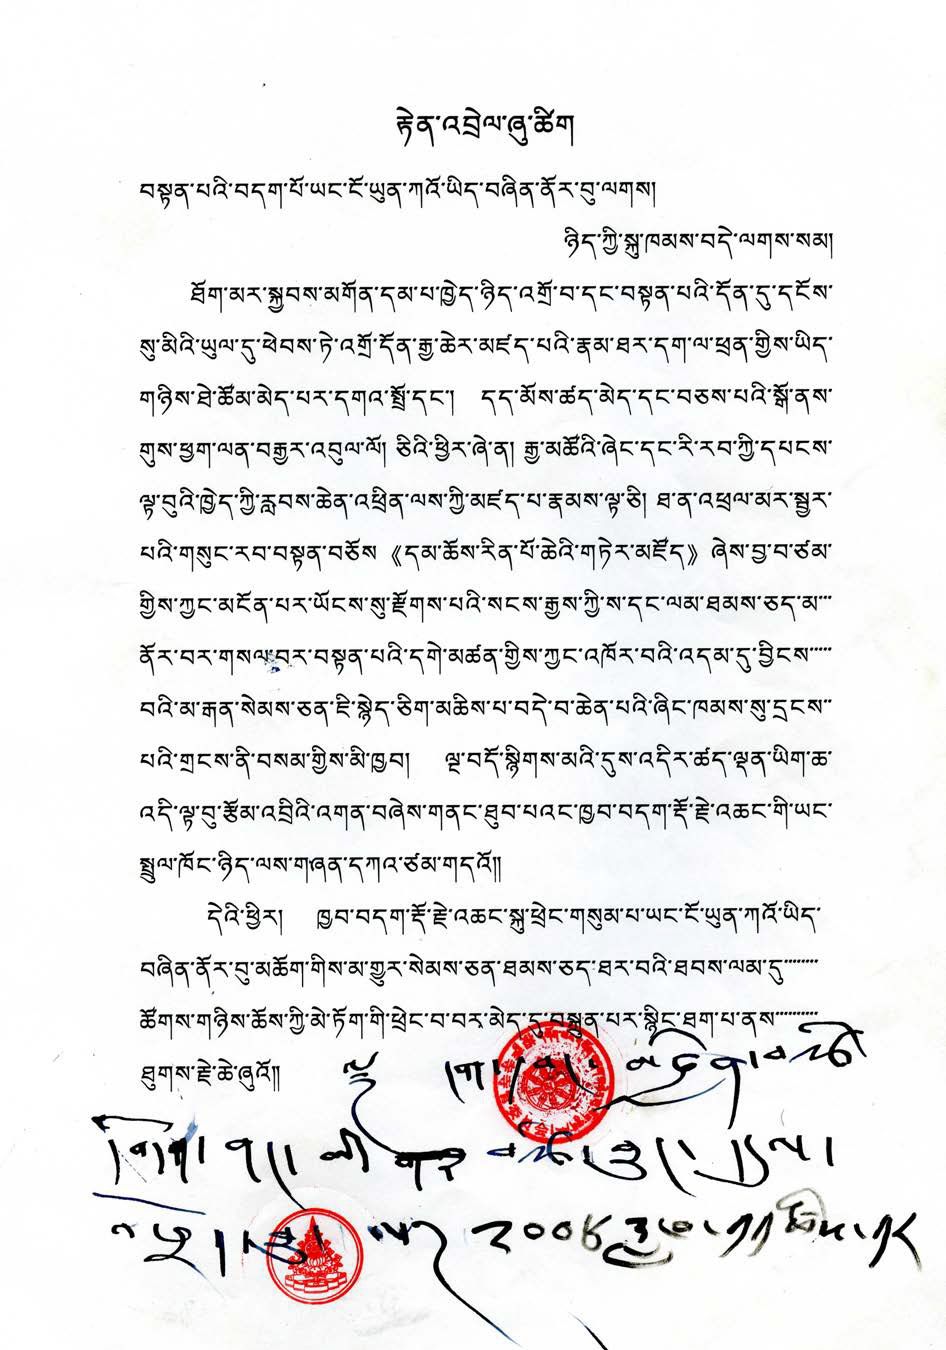 རྟེན་འབྲེལ་ཞུ་ཚིག
བསྟན་པའི་བདག་པོ་ཡང་ངོ་ཡུན་ཀའོ་ཡིད་བཞིན་ནོར་བུ་ལགས།
ཉིད་ཀྱི་སྐུ་ཁམས་བདེ་ལགས་སམ།
ཐོག་མར་སྐྱབས་མགོན་དམ་པ་ཁྱེད་ཉིད་འགྲོ་བ་དང་བསྟན་པའི་དོན་དུ་དངོས་
སུ་མིའི་ཡུལ་དུ་ཕེབས་ཏེ་འགྲོ་དོན་རྒྱ་ཆེར་མཛད་པའི་རྣམ་ཐར་དག་ལ་ཕྲན་གྱིས་ཡིད་
གཉིས་ཐེ་ཚོམ་མེད་པར་དགའ་སྤྲོ་དང་། དད་མོས་ཚད་མེད་དང་བཅས་པའི་སྒོ་ནས་
གུས་ཕྱག་ལན་བརྒྱར་འབུལ་ལོ། ཅིའི་ཕྱིར་ཞེ་ན། རྒྱ་མཚོའི་ཞེང་དང་རི་རབ་ཀྱི་དཔངས་
ལྟ་བུའི་ཁྱེད་ཀྱི་རླབས་ཆེན་འཕྲིན་ལས་ཀྱི་མཛད་པ་རྣམས་ལྟ་ཅི། ཐ་ན་འཕྲལ་མར་སྦྱར་
པའི་གསུང་རབ་བསྟན་བཅོས《དམ་ཆོས་རིན་པོ་ཆེའི་གཏེར་མཛོད》ཞེས་བྱ་བ་ཙམ་
གྱིས་ཀྱང་མངོན་པར་ཡོངས་སུ་རྫོགས་པའི་སངས་རྒྱས་ཀྱི་ས་དང་ལམ་ཐམས་ཅད་མ་་་
ནོར་བར་གསལ་བར་བསྟན་པའི་དགེ་མཚན་གྱིས་ཀྱང་འཁོར་བའི་འདམ་དུ་བྱིངས་་་་་
བའི་མ་རྒན་སེམས་ཅན་ཇི་སྙེད་ཅིག་མཆིས་པ་བདེ་བ་ཆེན་པའི་ཞིང་ཁམས་སུ་དྲངས་་་
པའི་གྲངས་ནི་བསམ་གྱིས་མི་ཁྱབ། ལྔ་བདོ་སྙིགས་མའི་དུས་འདིར་ཚད་ལྡན་ཡིག་ཆ་
འདི་ལྟ་བུ་རྩོམ་འབྲིའི་འགན་བཞེས་གནང་ཐུབ་པའང་ཁྱབ་བདག་རྡོ་རྗེ་འཆང་གི་ཡང་
སྤྲུལ་ཁོང་ཉིད་ལས་གཞན་དཀའ་ཙམ་གདའོ།།
དེའི་ཕྱིར། ཁྱབ་བདག་རྡོ་རྗེ་འཆང་སྐུ་ཕྲེང་གསུམ་པ་ཡང་ངོ་ཡུན་ཀའོ་ཡིད་
བཞིན་ནོར་བུ་མཆོག་གིས་མ་གྱུར་སེམས་ཅན་ཐམས་ཅད་ཐར་བའི་ཐབས་ལམ་དུ་་་་་་་་
ཚོགས་གཉིས་ཆོས་ཀྱི་མེ་ཏོག་གི་ཕྲེང་བ་བར་མེད་དུ་བསྟུན་པར་སྙིང་ཐག་པ་ནས་་་་་་་་་
ཐུགས་རྗེ་ཆེ་ཞུའོ།།